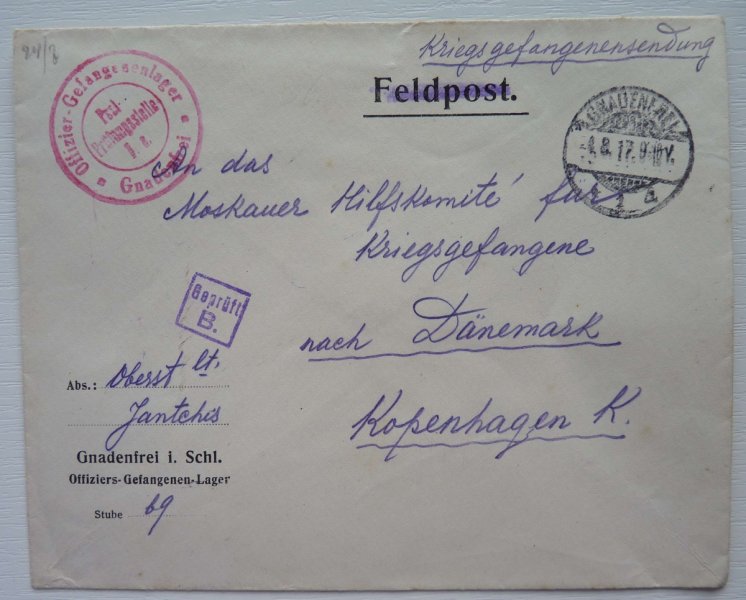 24/8
Kriegsgefangenensendung
Feldpost.
Offizier-Gefangenenlager
Gnadenfrei
Post-
Prüfungsstelle
GNADENFREI
-4.8.17.9-10V.
1 a
An das
Moskauer Hilfskomité für
Kriegsgefangene
nach Dänemark
Kopenhagen K.
Geprüft
B.
Abs.: Oberst lt.
Jantchis
Gnadenfrei i. Schl.
Offiziers-Gefangenen-Lager
Stube 69